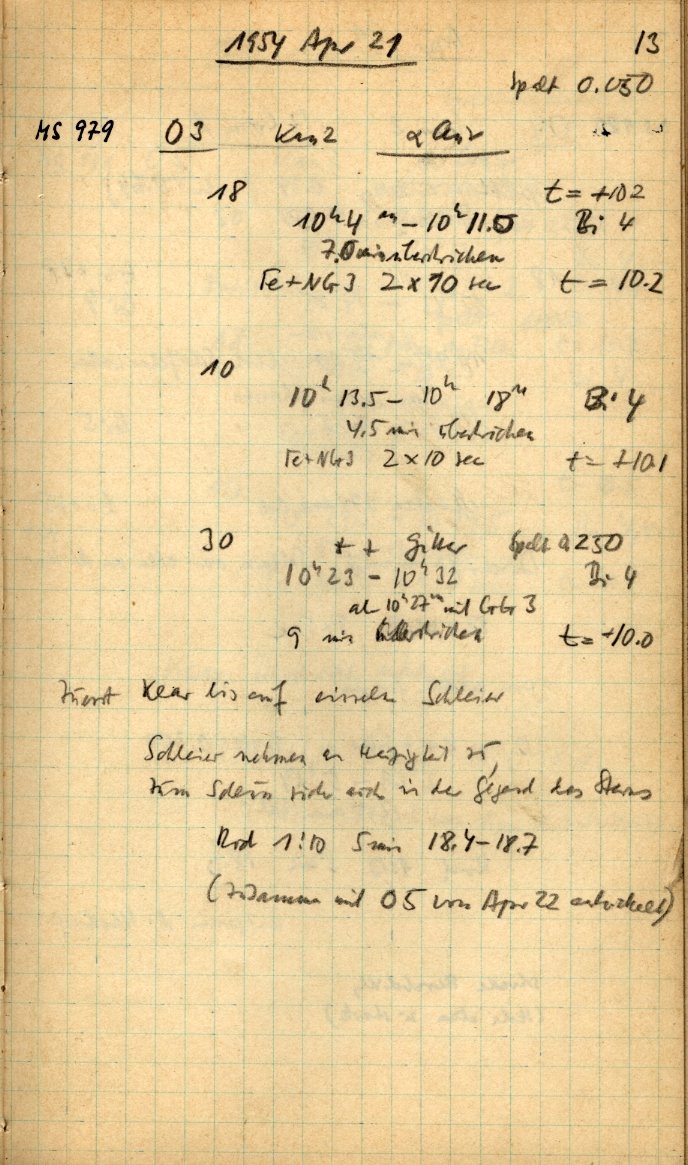 1954 Apr 21 13
Spalt 0.050
MS 979 O3 Kam2 α Aur
18 t = +10.2
10h 4 m – 10h 11.5 Bi 4
7.0 min überstrichen
Fe+NGr3 2×10 sec t = 10.2
10
10h 13.5 – 10h 18m Bi 4
4.5 min überstrichen
Fe+NGr3 2×10 sec t = +10.1
30 * + Gitter Spalt 0.250
10h 23 – 10h 32 Bi 4
ab 10h 27m mit GrGr 3
9 min überstrichen t = +10.0
Zuerst klar bis auf einzelne Schleier
Schleier nehmen an Häufigkeit zu,
zum Schluss sicher auch in der Gegend des Sterns
Rod 1:10 5 min 18.4–18.7
(Zusammen mit O5 von Apr 22 entwickelt)